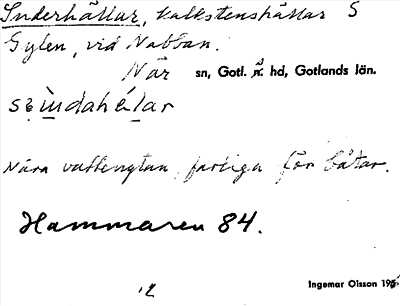 Sunderhällar, kalkstenshällar S
Gylen, vid Nabban.
När sn, Gotl. s. hd, Gotlands län.
Nära vattenytan, farliga för båtar.
Hammaren 84.
12
Ingemar Olsson 195